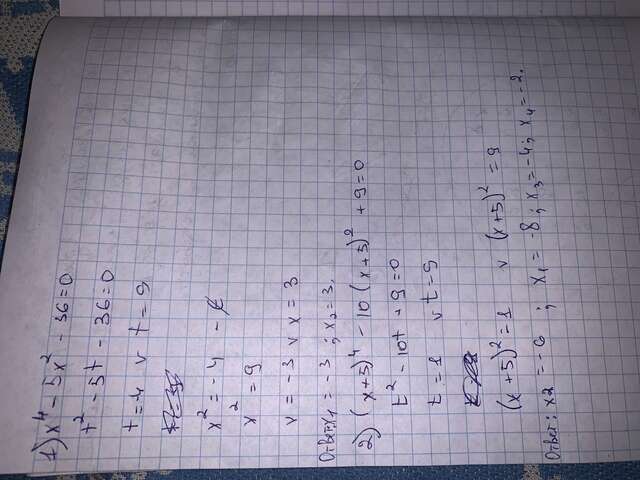 1) x⁴ - 5x² - 36 = 0
t² - 5t - 36 = 0
t = -4 v t = 9
x² = -4 -
x² = 9
x = -3 v x = 3
Ответ: x₁ = -3 ; x₂ = 3.
2) (x+5)⁴ - 10(x+5)² + 9 = 0
t² - 10t + 9 = 0
t = 1 v t = 9
(x+5)² = 1 v (x+5)² = 9
Ответ: x2 = -6 ; x₁ = -8 ; x₃ = -4 ; x₄ = -2.